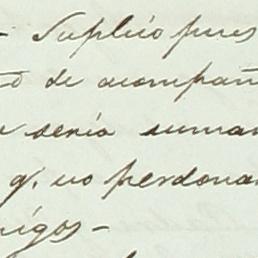 - Suplico pues
to de acompañ
a seria suma
q. no perdona
migos -